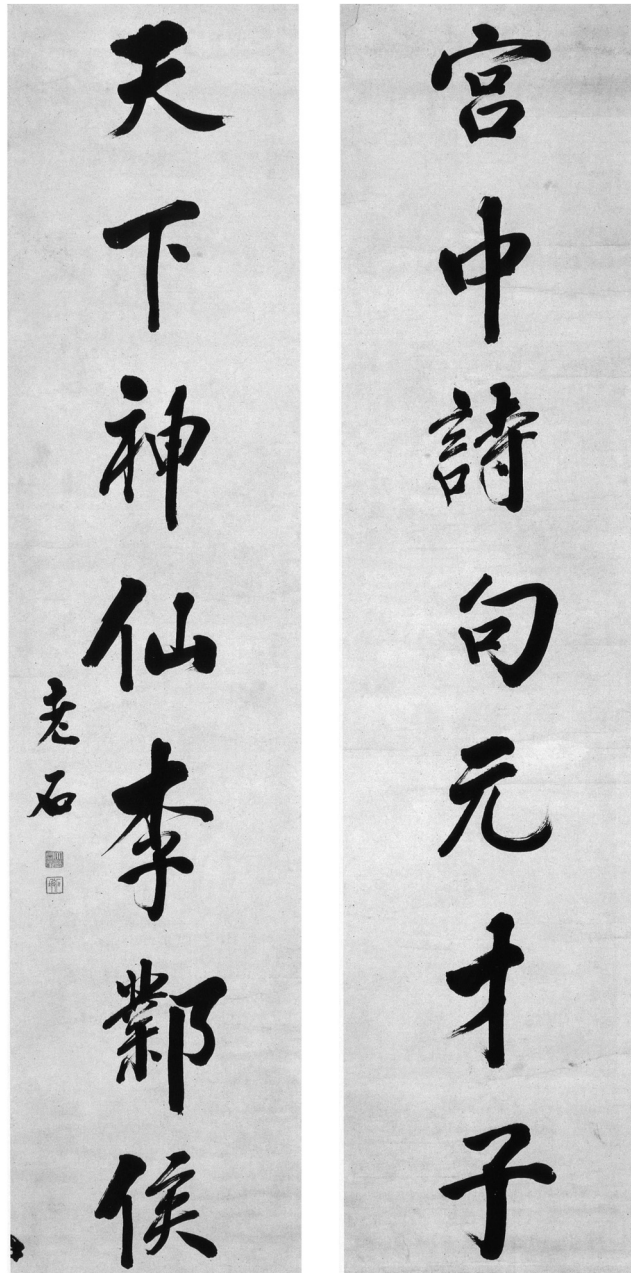 宮中詩句元才子
天下神仙李鄴侯
老石